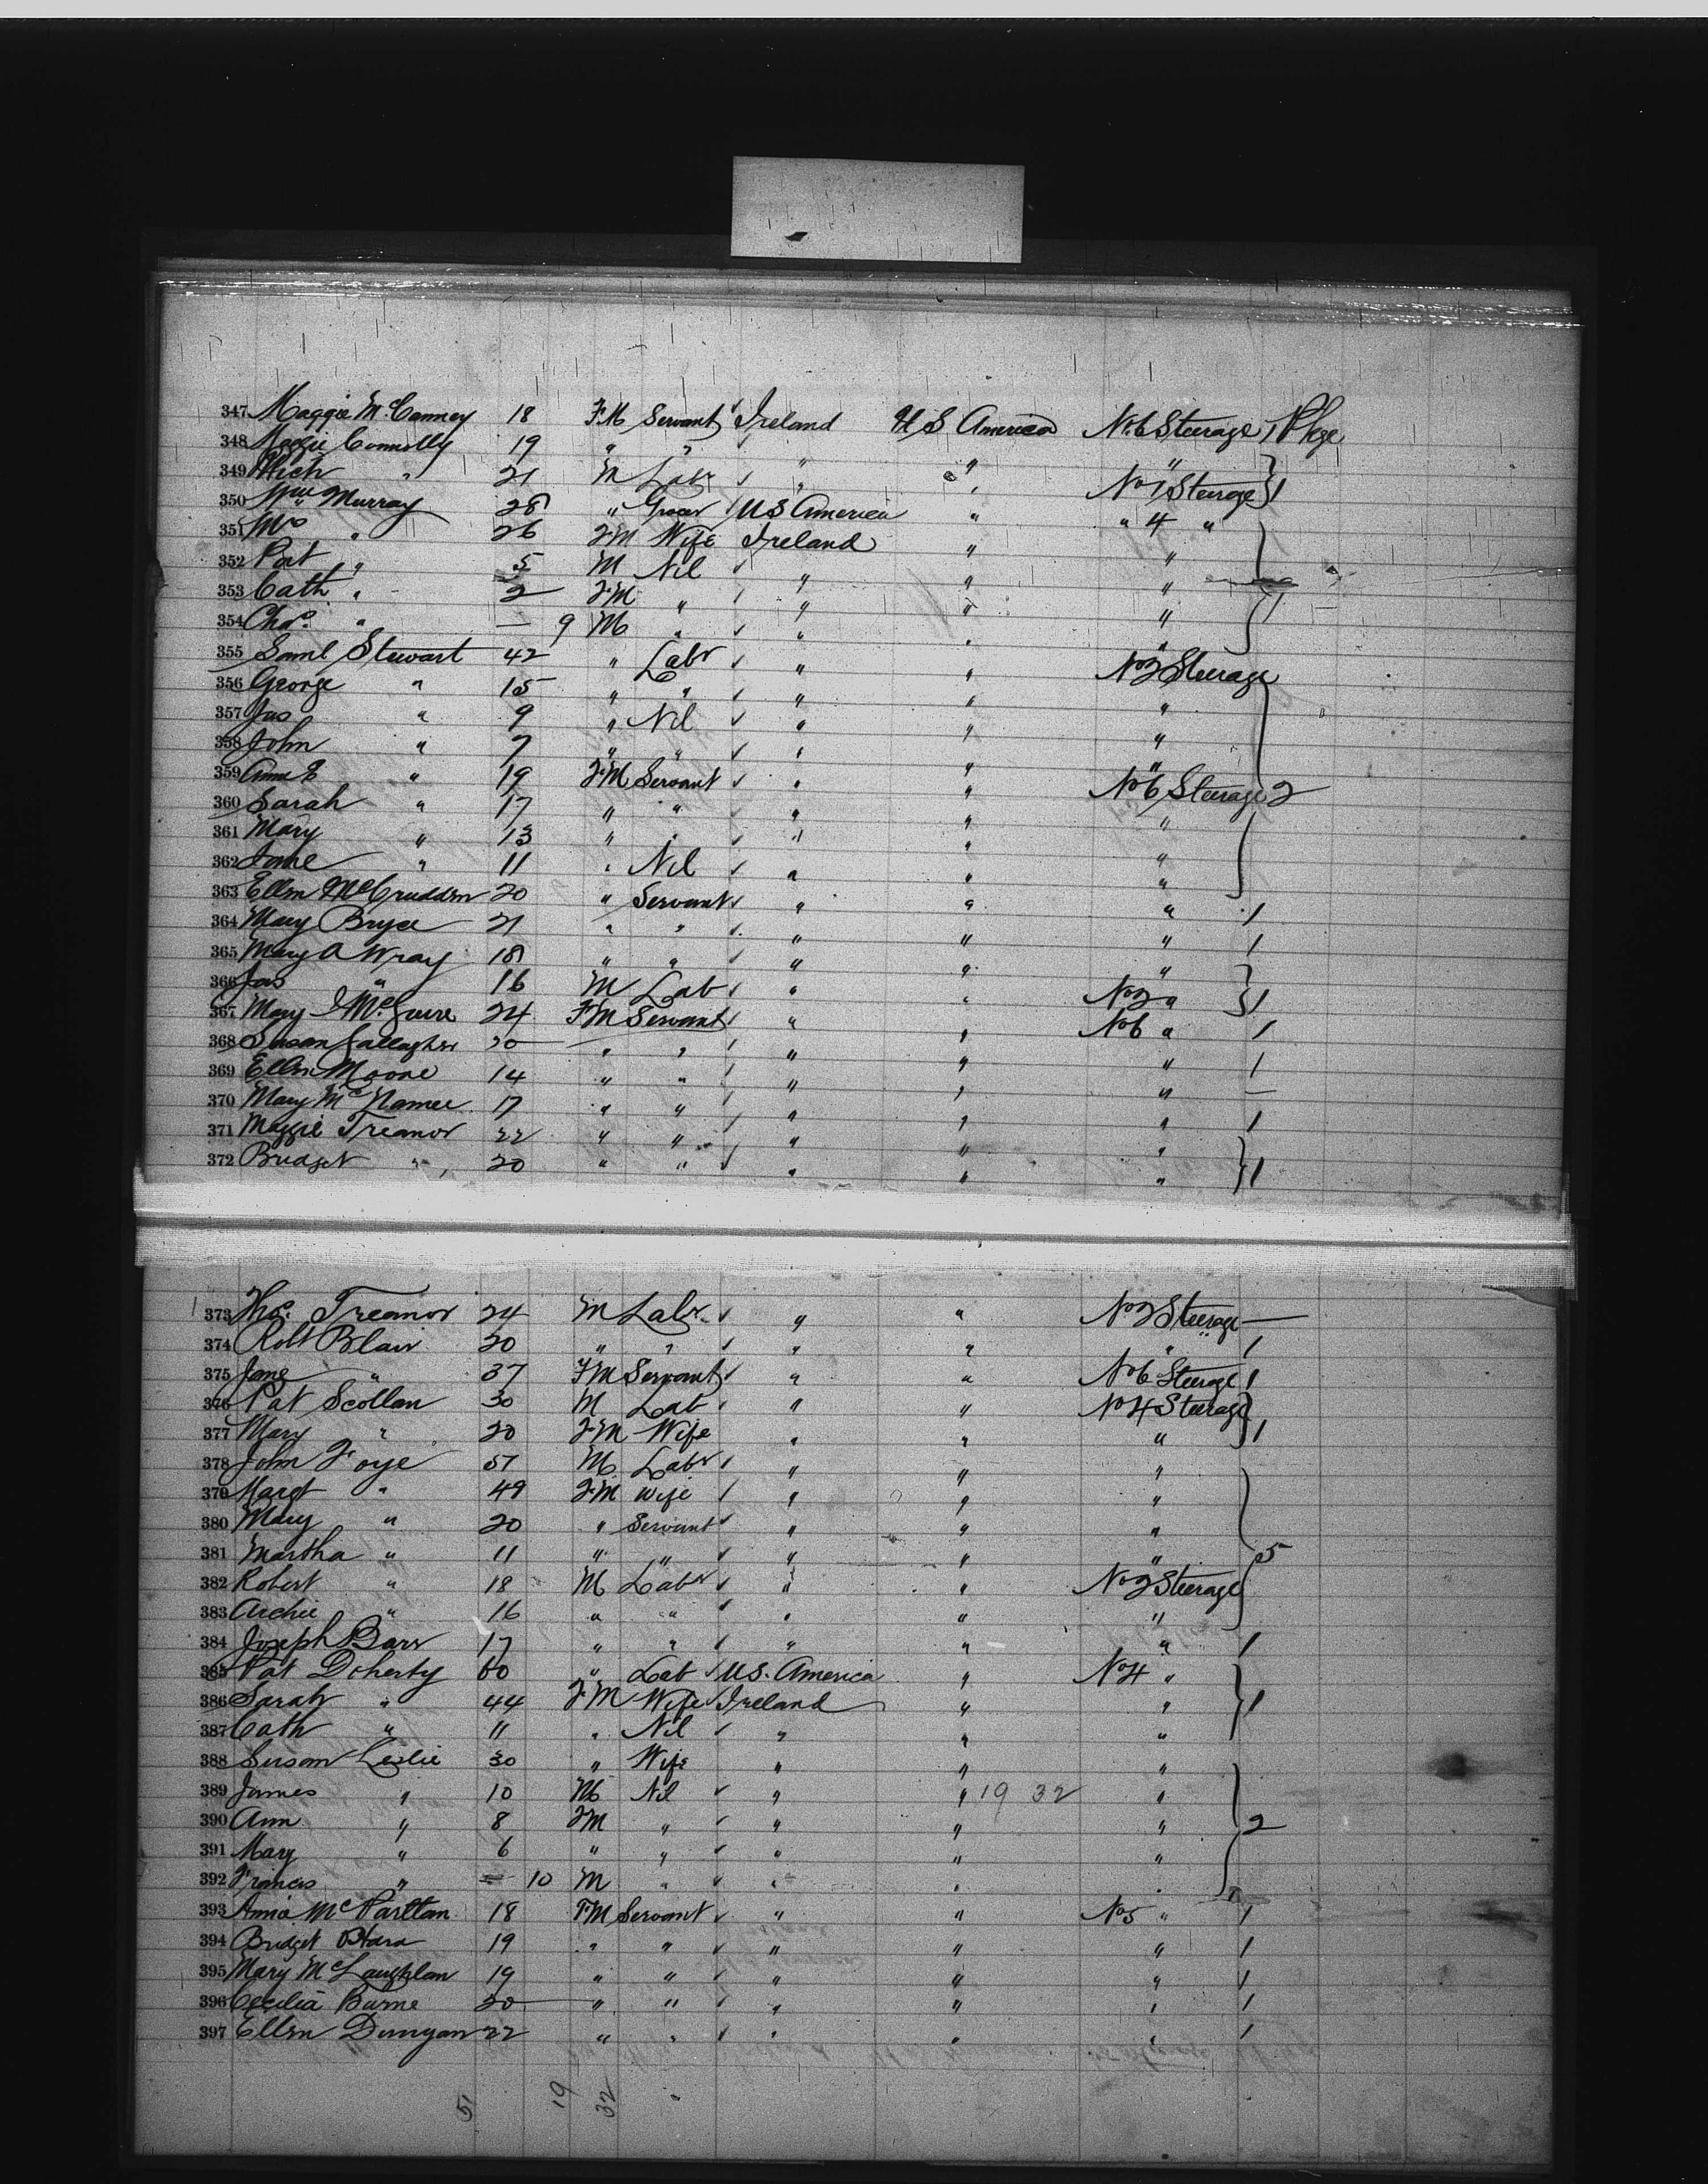 347 Maggie McCanney 18 FM Servant Ireland U S America No 6 Steerage 1 Pkge
348 Maggie Connolly 19 " " " " "
349 Mich " 21 M Labr " " No 1 Steerage 1
350 Wm Murray 28 " Grocer U S America " " 4 "
351 Mrs " 26 FM Wife Ireland " "
352 Pat " 5 M Nil " " "
353 Cath " 2 FM " " " "
354 Chas. " — 9 M " " " "
355 Saml Stewart 42 " Labr " " No 2 Steerage
356 George " 15 " " " " "
357 Jas " 9 " Nil " " "
358 John " 7 " " " " "
359 Anne E " 19 FM Servant " " No 6 Steerage 2
360 Sarah " 17 " " " " "
361 Mary " 13 " " " " "
362 Jane " 11 " Nil " " "
363 Ellen McCrudden 20 " Servant " " " 1
364 Mary Bryce 21 " " " " " 1
365 Mary A Wray 18 " " " " "
366 Jas " 16 M Lab " " No 2 " 1
367 Mary J McGuire 24 FM Servant " " No 6 " 1
368 Susan Gallagher 20 " " " " " 1
369 Ellen Moore 14 " " " " " —
370 Mary McNamee 17 " " " " " 1
371 Maggie Treanor 22 " " " " "
372 Bridget " 20 " " " " " 1
373 Thos. Treanor 24 M Labr. " " No 2 Steerage —
374 Robt Blair 20 " " " " " 1
375 Jane " 37 FM Servant " " No 6 Steerage 1
376 Pat Scollan 30 M Lab " " No 4 Steerage
377 Mary " 20 FM Wife " " " 1
378 John Foye 57 M Labr " " "
379 Margt " 49 FM Wife " " "
380 Mary " 20 " Servant " " "
381 Martha " 11 " " " " " 5
382 Robert " 18 M Labr " " No 2 Steerage
383 Archie " 16 " " " " "
384 Joseph Barr 17 " " " " " 1
385 Pat Doherty 60 " Lab U.S. America " No 4 "
386 Sarah " 44 FM Wife Ireland " " 1
387 Cath " 11 " Nil " " "
388 Susan Leslie 30 " Wife " " "
389 James " 10 M Nil " " 19 32 "
390 Ann " 8 FM " " " " 2
391 Mary " 6 " " " " "
392 Francis " — 10 M " " " "
393 Annie McPartlan 18 FM Servant " " No 5 " 1
394 Bridget OHara 19 " " " " " 1
395 Mary McLaughlan 19 " " " " " 1
396 Cecilia Burne 20 " " " " " 1
397 Ellen Dunyan 22 " " " " " 1
51 19 32